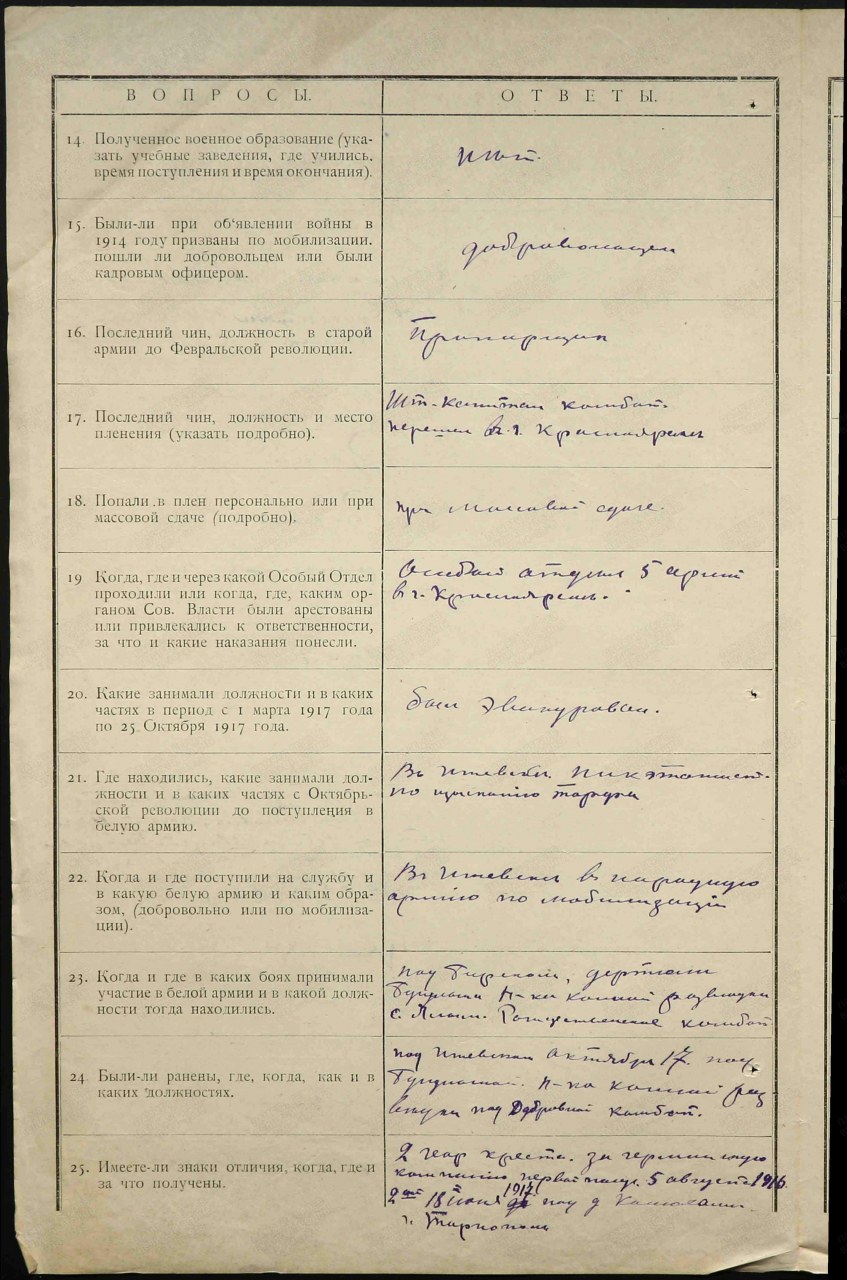 ВОПРОСЫ.
ОТВЕТЫ.
14. Полученное военное образование (ука-
зать учебные заведения, где учились,
время поступления и время окончания).
15. Были-ли при об‘явлении войны в
1914 году призваны по мобилизации.
пошли ли добровольцем или были
кадровым офицером.
добровольцем
16. Последний чин, должность в старой
армии до Февральской революции.
Прапорщик
17. Последний чин, должность и место
пленения (указать подробно).
Шт-капитан комбат.
перешел въ г. Красноярске
18. Попали в плен персонально или при
массовой сдаче (подробно).
при массовой сдаче.
19 Когда, где и через какой Особый Отдел
проходили или когда, где, каким ор-
ганом Сов. Власти были арестованы
или привлекались к ответственности,
за что и какие наказания понесли.
Особый отдел 5 армии
в г. Красноярске.
20. Какие занимали должности и в каких
частях в период с 1 марта 1917 года
по 25 Октября 1917 года.
был эвакурован.
21. Где находились, какие занимали дол-
жности и в каких частях с Октябрь-
ской революции до поступления в
белую армию.
Въ Ижевске
по
22. Когда и где поступили на службу и
в какую белую армию и каким обра-
зом, (добровольно или по мобилиза-
ции).
Въ Ижевске въ народную
армию по мобилизации
23. Когда и где в каких боях принимали
участие в белой армии и в какой долж-
ности тогда находились.
под Бирском,
Н-ка конной разведки
с. Рождественское комбат
24. Были-ли ранены, где, когда, как и в
каких должностях.
под Ижевском Октября 17. под
Н-ка конной раз-
ведки под комбат.
25. Имеете-ли знаки отличия, когда, где и
за что получены.
2 геор креста. за германскую
компанию первой 5 августа 1916
2ой 18 июня 1917 под д
г. Тарнополь